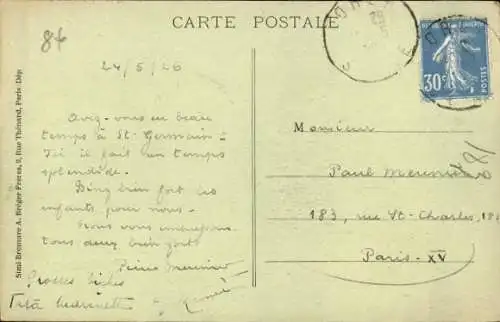 CARTE POSTALE
84
24/5/26
Avez-vous eu beau
temps à St. Germain =
Ici il fait un temps
splendide.
Bing bien fort les
enfants pour nous.
Nous vous embrassons
tous deux bien fort
Pierre Meunier
Grosses bises
Tata
Monsieur
Paul Meunier
183, rue St-Charles, 183
Paris-XV
30c
POSTES
Simi-Bromure A. Bréger Frères, 9, Rue Thénard, Paris-Dép